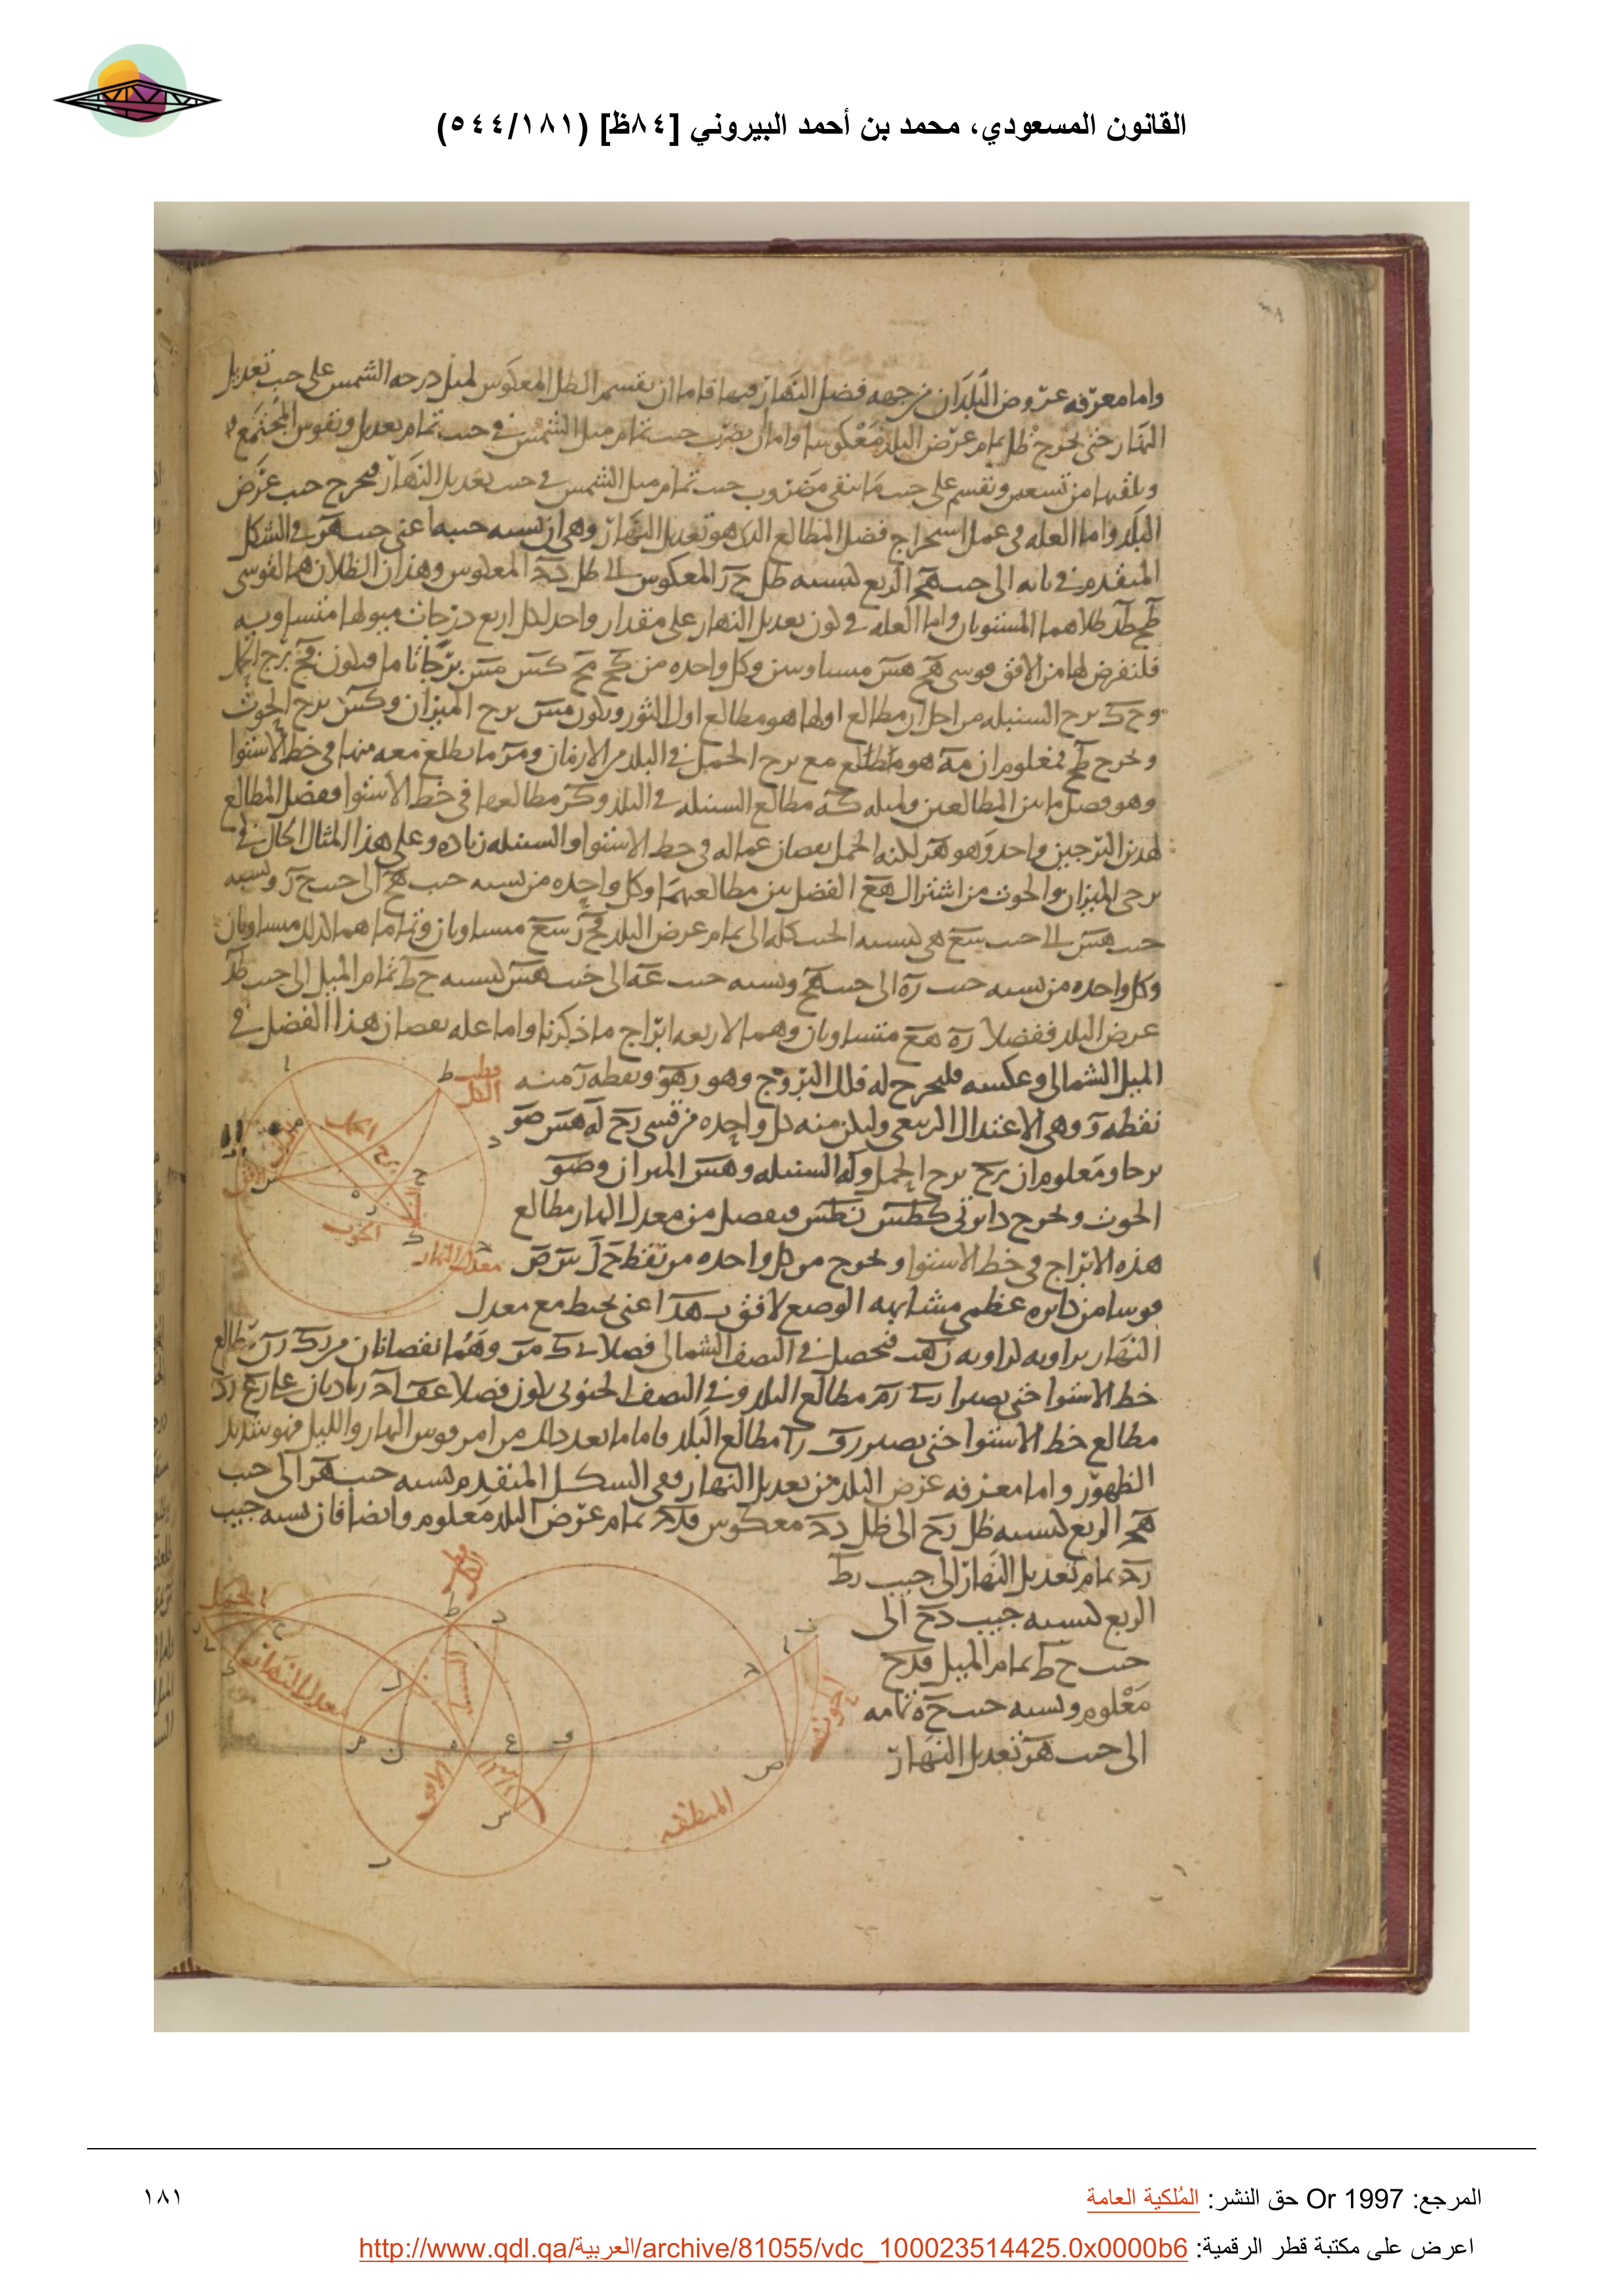 القانون المسعودي، محمد بن أحمد البيروني [٨٤ظ] (٥٤٤/١٨١)
واما معرفه عروض البلدان من جهه فضل النهار فيها فاما ان يقسم الظل المعكوس لميل درجه الشمس على جيب تعديل
النهار حتى يخرج ظل تمام عرض البلد معكوسا واما ان يضرب جيب تمام ميل الشمس في جيب تمام تعديل ويقوس المجتمع
ويلقيها من تسعين ويقسم على جيب ما يبقى مضروب جيب تمام ميل الشمس في جيب تعديل النهار فيخرج جيب عرض
البلد واما العله في عمل استخراج فضل المطالع الذي هو تعديل النهار وهي ان نسبه جيبه اعني جيب هر في الشكل
المتقدم في بابه الى جيب هج الربع كنسبه ظل ح ر المعكوس الى ظل دج المعكوس وهذان الظلان هما لقوسي
طح طد ظلاهما المستويان واما العله في كون تعديل النهار على مقدار واحد لكل اربع درجات ميولها متساويه
فلنفرض لها من الافق قوسي هح هس متساويتين وكل واحده من كح مح كس مس برجا تاما فيكون مح برج الحمل
وح ك برج السنبله من اجل ان مطالع اولها هو مطالع اول الثور ويكون مس برج الميزان وكس برج الحوت
ونخرج طح فمعلوم ان مه هو ما طلع مع برج الحمل في البلد من الازمان ومر ما يطلع معه منها في خط الاستوا
وهو فصل ما بين المطالعين ولمثله كه مطالع السنبله في البلد وكر مطالعها في خط الاستوا وفضل المطالع
لهذين البرجين واحد وهو هر لكنه للحمل نقصان عما له في خط الاستوا وللسنبله زياده وعلى هذا المثال الحال في
برجي الميزان والحوت من اشتراك هع الفضل بين مطالعهما وكل واحده من نسبه جيب هح الى جيب ح ر ونسبه
جيب هس الى جيب سع هي كنسبه الجيب كله الى تمام عرض البلد فح ر سع متساويان وتماماهما كذلك متساويان
وكل واحده من نسبه جيب ره الى جيب هح ونسبه جيب عه الى جيب هس كنسبه ح ط تمام الميل الى جيب طد
عرض البلد ففضلا ره هع متساويان وهما لاربعه ابراج ما ذكرنا واما عله نقصان هذا الفضل في
الميل الشمالي وعكسه فليخرج له فلك البروج وهو رهو ونقطه ر منه
نقطه ر وهي الاعتدال الربيعي وليكن منه كل واحده من قسي رح له هس صو
برجا ومعلوم ان رح برج الحمل وله السنبله وهس الميزان وصو
الحوت ونخرج دايرتي كطس نطس فيفصل من معدل النهار مطالع
هذه الابراج في خط الاستوا ونخرج من كل واحده من نقط ح ل س ص
قوسا من دايره عظمى مشابهه الوضع لافق ب هد اعني يحيط مع معدل
النهار بزاويه كزاويه رهب فيحصل في النصف الشمالي فضلا
خط الاستوا حتى يصيرا مطالع البلد وفي النصف الجنوبي يكون فضلا
مطالع خط الاستوا حتى يصير مطالع البلد فاما ما بعد ذلك من امر قوس النهار والليل فهو شديد
الظهور واما معرفه عرض البلد من تعديل النهار ففي الشكل المتقدم نسبه جيب هر الى جيب
هج الربع كنسبه ظل رح الى ظل دج معكوس فدج تمام عرض البلد معلوم وايضا فان نسبه جيب
رج تمام تعديل النهار الى جيب رط
الربع كنسبه جيب دح الى
جيب ح ط تمام الميل فدح
معلوم ونسبه جيب ح ه تمامه
الى جيب هر تعديل النهار
قطب الكل
برج
معدل النهار
الحوت
الحمل
معدل النهار
الافق
المنطقه
المرجع: Or 1997 حق النشر: المُلكية العامة
١٨١
اعرض على مكتبة قطر الرقمية: http://www.qdl.qa/العربية/archive/81055/vdc_100023514425.0x0000b6